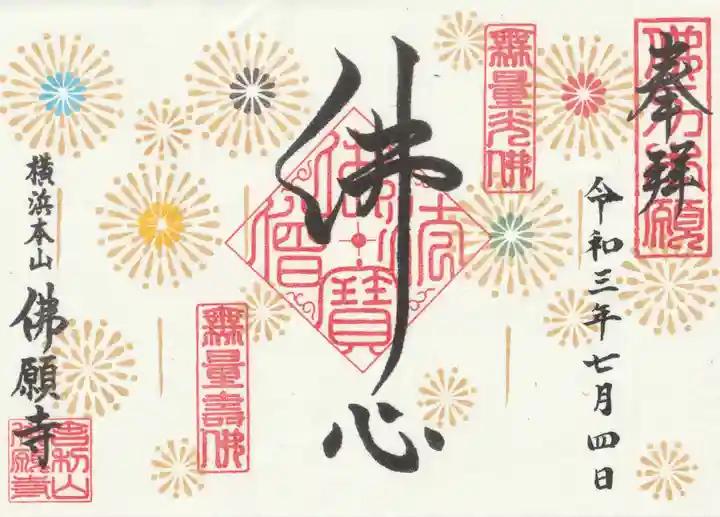 奉拝
令和三年七月四日
無量光佛
佛心
佛法僧寳
無量壽佛
横浜本山
佛願寺